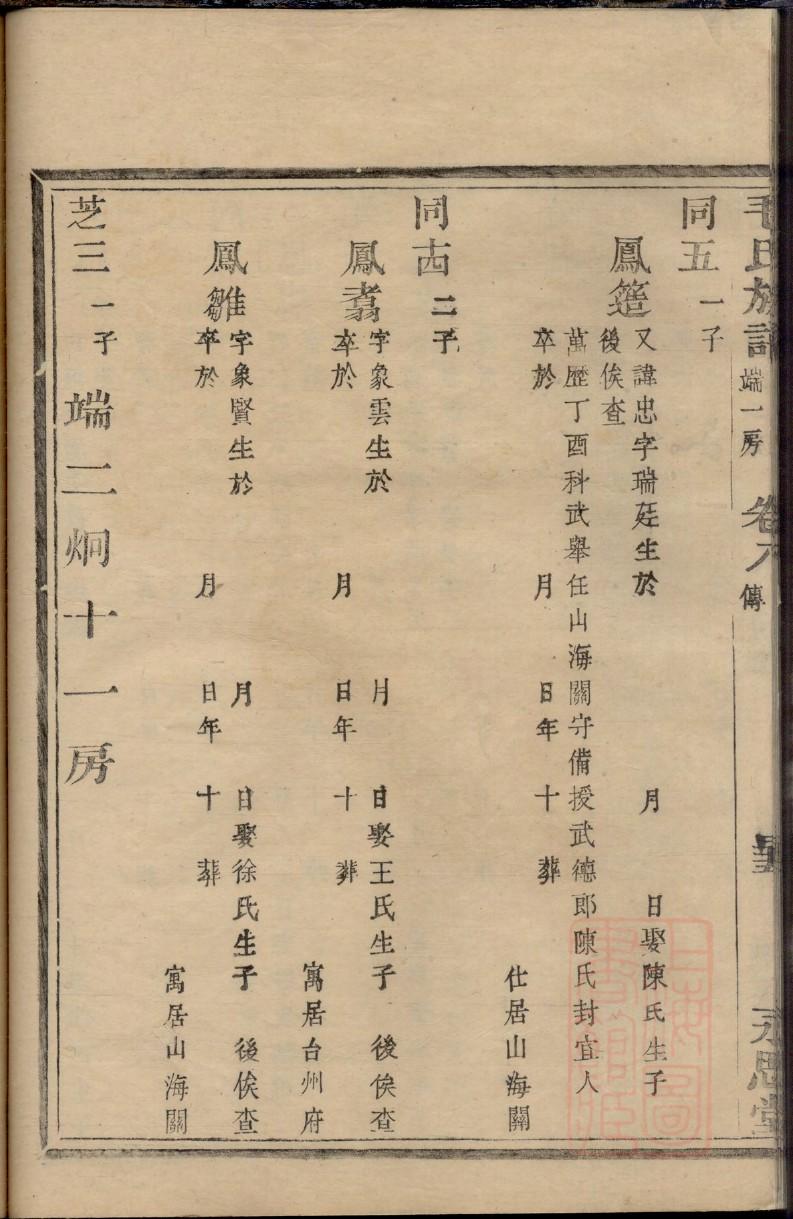 毛氏族譜 端一房 卷六 傳 永思堂
同五 一子
鳳簉 又諱忠字瑞廷生於 月 日娶陳氏生子
後俟查
萬歷丁酉科武舉任山海關守備授武德郎陳氏封宜人
卒於 月 日年十 葬 仕居山海關
同古 二子
鳳翥 字象雲生於 月 日娶王氏生子 後俟查
卒於 月 日年十 葬 寓居台州府
鳳雛 字象賢生於 月 日娶徐氏生子 後俟查
卒於 月 日年十 葬 寓居山海關
芝三 一子 端二炯十一房